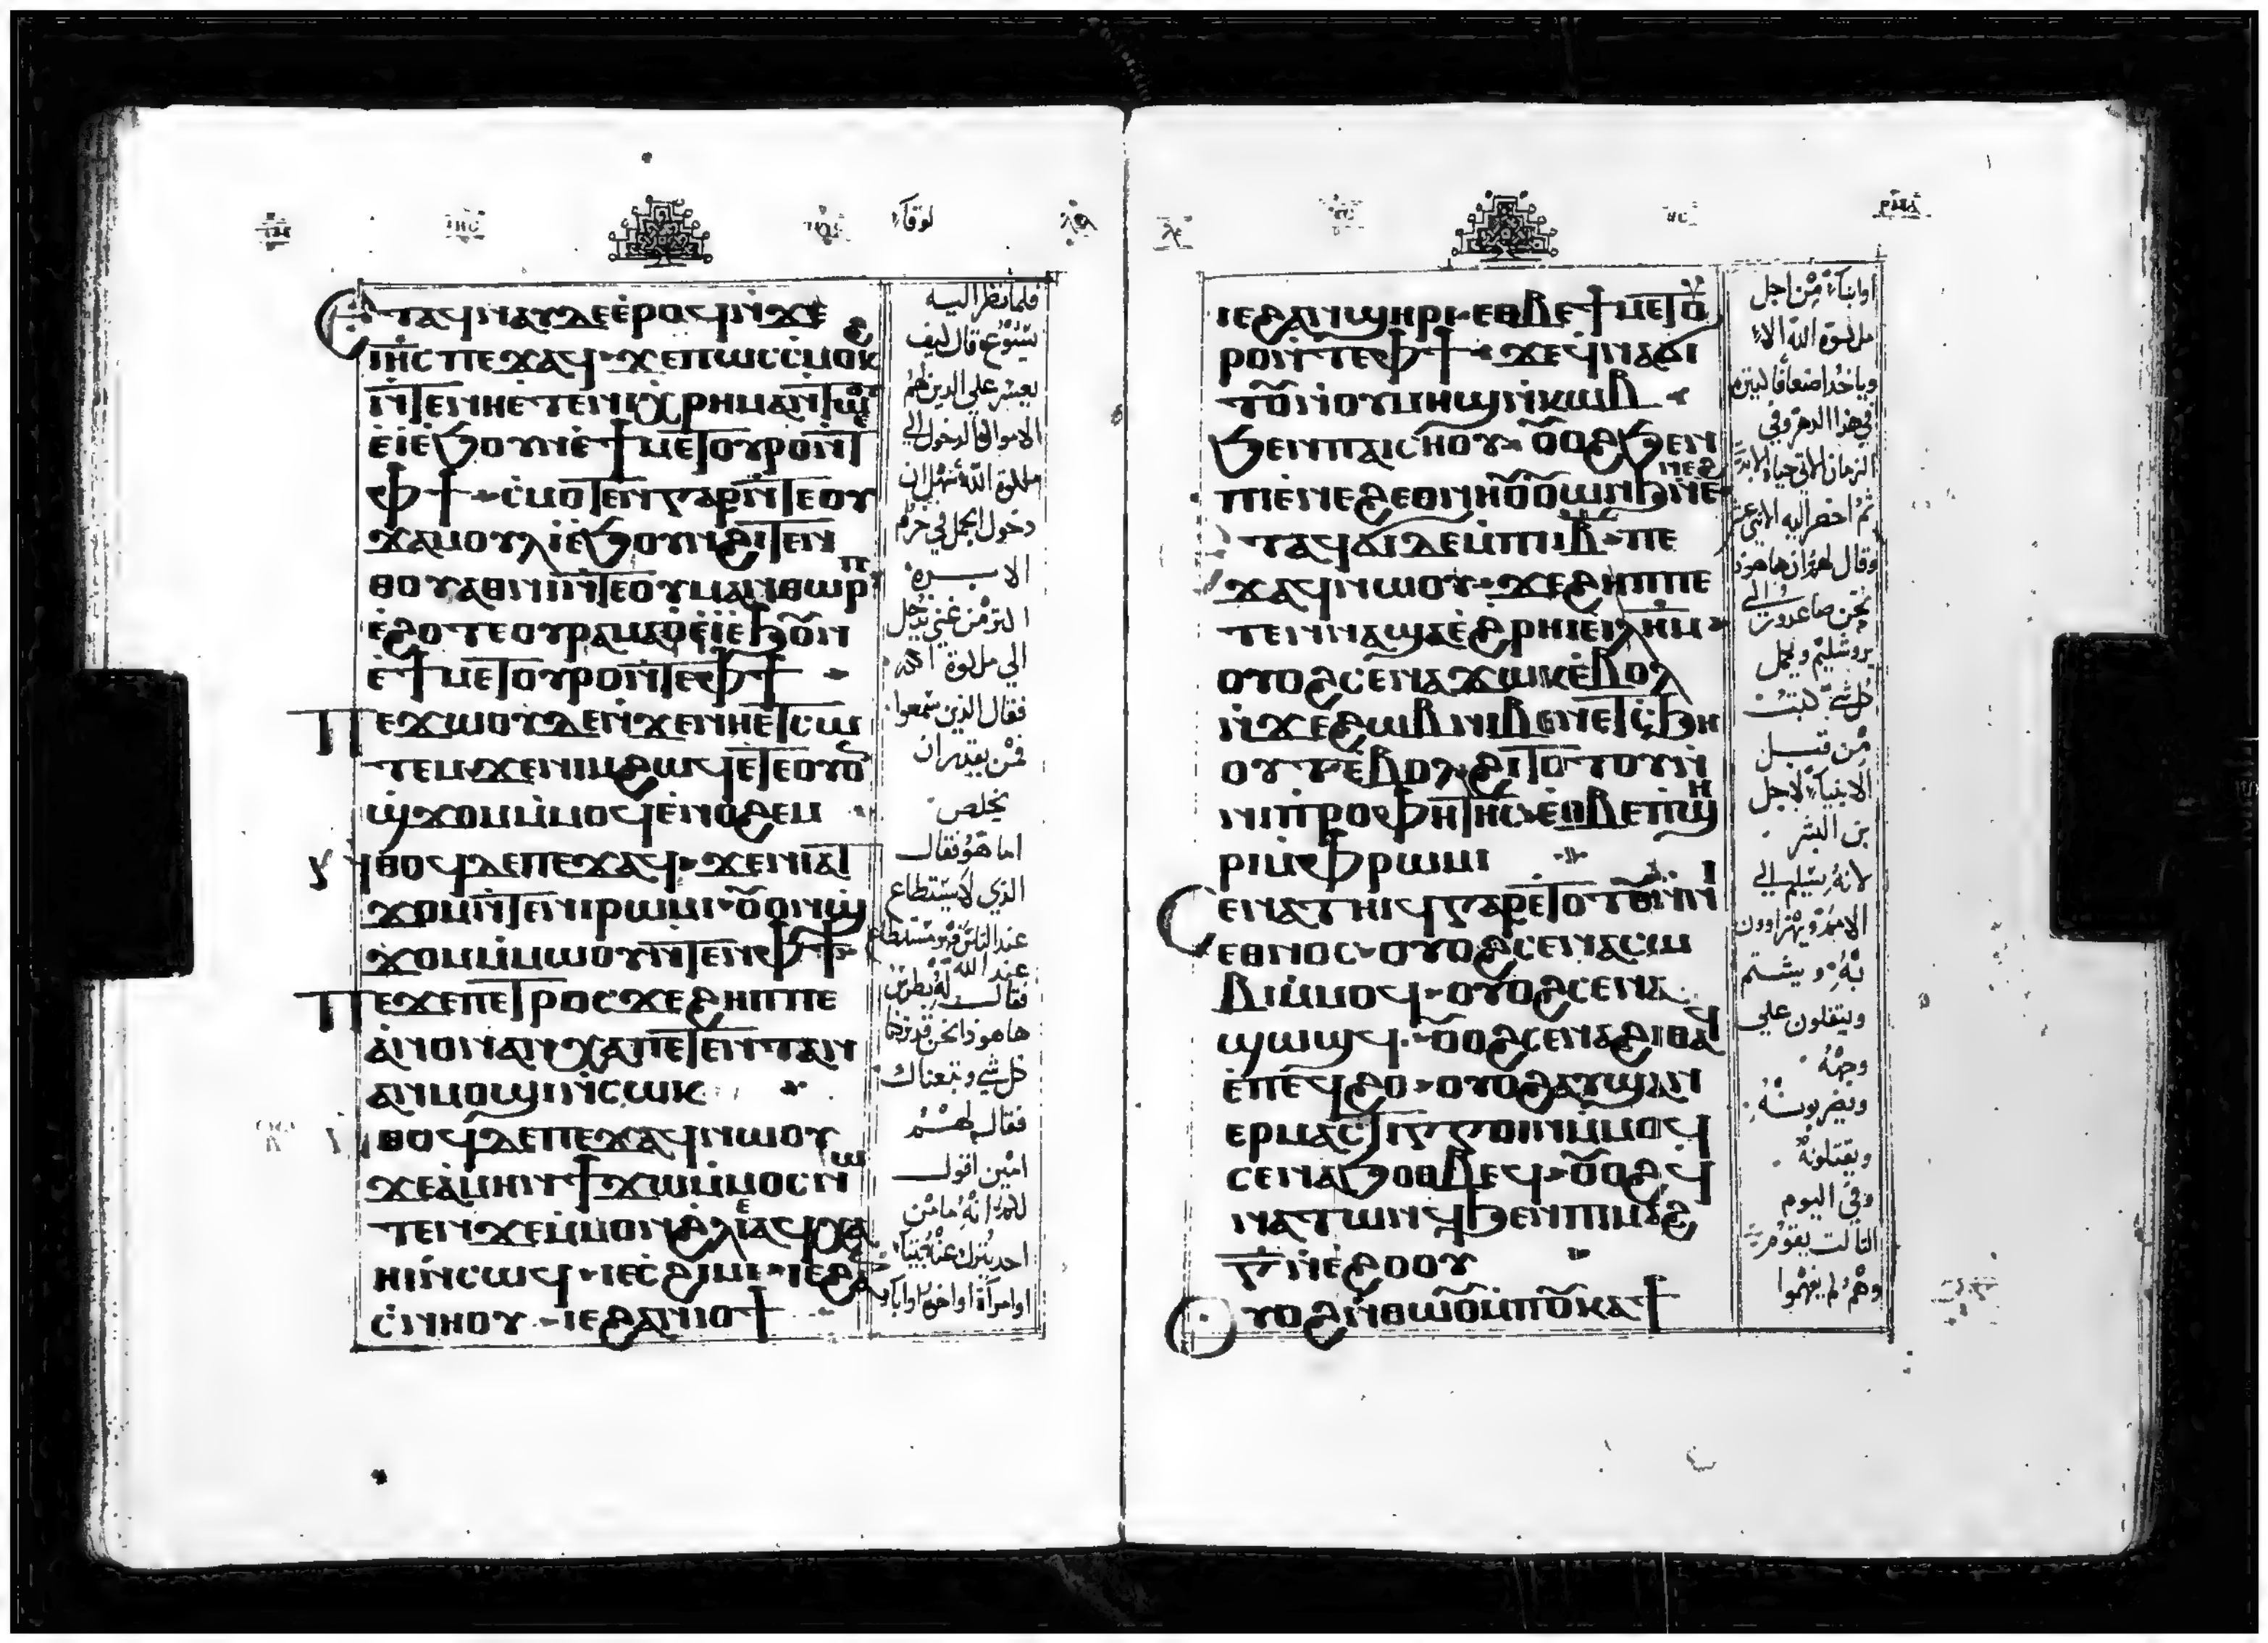 لوقا
Ⲉⲧⲁϥⲛⲁⲩⲇⲉⲉ̀ⲣⲟϥⲛ̀ϫⲉ
ⲓⲏ̅ⲥ̅ⲡⲉϫⲁϥ ϫⲉⲡⲱⲥⲥ̀ⲙⲟⲕϩ
ⲛ̀ⲧⲉⲛⲛⲏⲉⲧⲉⲛⲓⲭⲣⲏⲙⲁⲛ̀ⲧⲱⲟⲩ
ⲉ̀ⲓⲉ̀ϧⲟⲩⲛⲉ̀ϯⲙⲉⲧⲟⲩⲣⲟⲛ̀ⲧⲉ
ⲫϯ ⲥ̀ⲙⲟⲧⲉⲛⲅⲁⲣⲛ̀ⲧⲉⲟⲩ
ϫⲁⲙⲟⲩⲗⲓ̀ⲉ̀ϧⲟⲩⲛϩⲓⲧⲉⲛ
ⲑⲟⲩⲁⲑⲛⲓⲛ̀ⲧⲉⲟⲩⲙⲁⲛⲑⲱⲣⲡ
ⲉ̀ϩⲟⲧⲉⲟⲩⲣⲁⲙⲁⲟ̀ⲉ̀ⲓ̀ⲉ̀ϧⲟⲩⲛ
ⲉ̀ϯⲙⲉⲧⲟⲩⲣⲟⲛ̀ⲧⲉⲫϯ
Ⲡⲉϫⲱⲟⲩⲇⲉⲛ̀ϫⲉⲛⲏⲉ̀ⲧⲥⲱ
ⲧⲉⲙ ϫⲉⲛⲓⲙϩⲱϥⲉⲧⲉⲟⲩⲟ
ϣ̀ϫⲟⲙⲙ̀ⲙⲟϥⲉ̀ⲛⲟϩⲉⲙ
Ⲛⲑⲟϥⲇⲉⲡⲉϫⲁϥ ϫⲉⲛⲓⲁⲧ
ϫⲟⲙⲛ̀ⲧⲉⲛⲛⲓⲣⲱⲙⲓ ⲟⲩⲟⲛϣ̀
ϫⲟⲙⲙ̀ⲙⲱⲟⲩⲛ̀ⲧⲉⲛⲫϯ
Ⲡⲉϫⲉⲡⲉⲧⲣⲟⲥϫⲉϩⲏⲡⲡⲉ
ⲁ̀ⲛⲟⲛⲁⲛⲭⲁⲡⲉⲧⲉⲛⲧⲁⲛ
ⲁⲛⲙⲟϣⲓⲛ̀ⲥⲱⲕ
Ⲛⲑⲟϥⲇⲉⲡⲉϫⲁϥⲛⲱⲟⲩ
ϫⲉⲁ̀ⲙⲏⲛϯϫⲱⲙ̀ⲙⲟⲥⲛⲱ
ⲧⲉⲛϫⲉⲙ̀ⲙⲟⲛϩ̀ⲗⲓⲉ̀ⲁϥⲭⲁ
ⲏⲓⲛ̀ⲥⲱϥ ⲓⲉⲥϩⲓⲙⲓ ⲓⲉϩⲁ
ⲥ̀ⲛⲏⲟⲩ ⲓⲉϩⲁⲛⲓⲟϯ
فلما نظر اليه
يسوع قال كيف
يعسر علي الذين لهم
الاموال الدخول الي
ملكوة الله سهل ان
دخول الجمل في خرم
الابره
اكثر من غني يدخل
الي ملكوة الله
فقال الذين سمعوا
فمن يقدر ان
يخلص
اما هو فقال
الذي لا يستطاع
عند الناس فهو مستطاع
عند الله
فقال له بطرس
هاهوذا نحن قد تركنا
كل شي وتبعناك
فقال لهم
امين اقول
لكم انه ما من
احد يترك عنه بيتا
او امراة او اخوة او اباء
ⲣⲙⲇ
ⲓⲉϩⲁⲛϣⲏⲣⲓ ⲉⲑⲃⲉϯⲙⲉⲧⲟⲩ
ⲣⲟⲛ̀ⲧⲉⲫϯ ϫⲉϥ̀ⲛⲁϭⲓ
ⲧⲟⲩⲛ̀ⲟⲩⲙⲏϣⲛ̀ⲕⲱⲃ
ϧⲉⲛⲡⲁⲓⲥⲏⲟⲩ ⲟⲩⲟϩϧⲉⲛ
ⲡⲓⲉ̀ⲛⲉϩⲉⲑⲛⲏⲟⲩⲟⲩⲱⲛϧⲛ̀ⲉⲛⲉϩ
Ⲉⲧⲁϥϭⲓⲇⲉⲙ̀ⲡⲓⲓ̅ⲃ̅ ⲡⲉ
ϫⲁϥⲛⲱⲟⲩ ϫⲉϩⲏⲡⲡⲉ
ⲧⲉⲛⲛⲁϣⲉⲉ̀ϩⲣⲏⲓⲉⲓⲗⲏⲙ
ⲟⲩⲟϩⲥⲉⲛⲁϫⲱⲕⲉ̀ⲃⲟⲗ
ⲛ̀ϫⲉϩⲱⲃⲛⲓⲃⲉⲛⲉⲧⲥ̀ϧⲏ
ⲟⲩⲧⲉ̀ⲃⲟⲗϩⲓⲧⲟⲧⲟⲩⲛ̀
ⲛⲓⲡⲣⲟⲫⲏⲧⲏⲥ ⲉⲑⲃⲉⲡϣⲏ
ⲣⲓⲙ̀ⲫⲣⲱⲙⲓ
Ⲥⲉⲛⲁⲧⲏⲓϥⲅⲁⲣⲉ̀ⲧⲟⲧⲟⲩⲛ̀ⲛⲓ
ⲉⲑⲛⲟⲥ ⲟⲩⲟϩⲥⲉⲛⲁⲥⲱ
ⲃⲓⲙ̀ⲙⲟϥ ⲟⲩⲟϩⲥⲉⲛⲁ
ϣⲱϣϥ ⲟⲩⲟϩⲥⲉⲛⲁϩⲓⲑⲁϥ
ⲉ̀ⲡⲉϥϩⲟ ⲟⲩⲟϩⲁⲩϣⲁⲛ
ⲉⲣⲙⲁⲥⲧⲓⲅⲅⲟⲓⲛⲙ̀ⲙⲟϥ
ⲥⲉⲛⲁϧⲟⲑⲃⲉϥ ⲟⲩⲟϩϥ̀
ⲛⲁⲧⲱⲛϥϧⲉⲛⲡⲓⲙⲁϩ
ⲅ̅ⲛ̀ⲉ̀ϩⲟⲟⲩ
Ⲟⲩⲟϩⲛ̀ⲑⲱⲟⲩⲙ̀ⲡⲟⲩⲕⲁϯ
او ابناء من اجل
ملكوة الله الا
وياخذ اضعافا كثيره
في هذا الدهر وفي
الزمان الاتي حياة الابد
ثم احضر اليه الاثني عشر
وقال لهم ان هاهوذا
نحن صاعدون الي
يروشليم ويكمل
كل شي كتبت
من قبل
الانبياء لاجل
بن البشر
لانه يسلم الي
الامم ويهزاوون
به ويشتم
ويتفلون علي
وجهه
ويضربونه
ويقتلونه
وفي اليوم
الثالث يقوم
وهم لم يفهموا